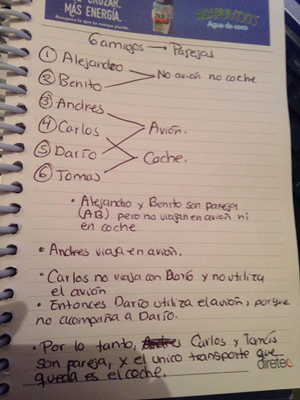 CRUZAR.
MÁS ENERGÍA.
Agua de coco
6 amigos → Parejas
① Alejandro
② Benito
No avión no coche
③ Andres
④ Carlos
Avión.
⑤ Darío
Coche.
⑥ Tomas
• Alejandro y Benito son parejas
(AB) pero no viajan en avión ni
en coche
• Andres viaja en avión.
• Carlos no viaja con Darío y no utiliza
el avión
• Entonces Darío utiliza el avión, porque
no acompaña a Darío.
• Por lo tanto, Carlos y Tomás
son pareja, y el unico transporte que
queda es el coche.
diretec